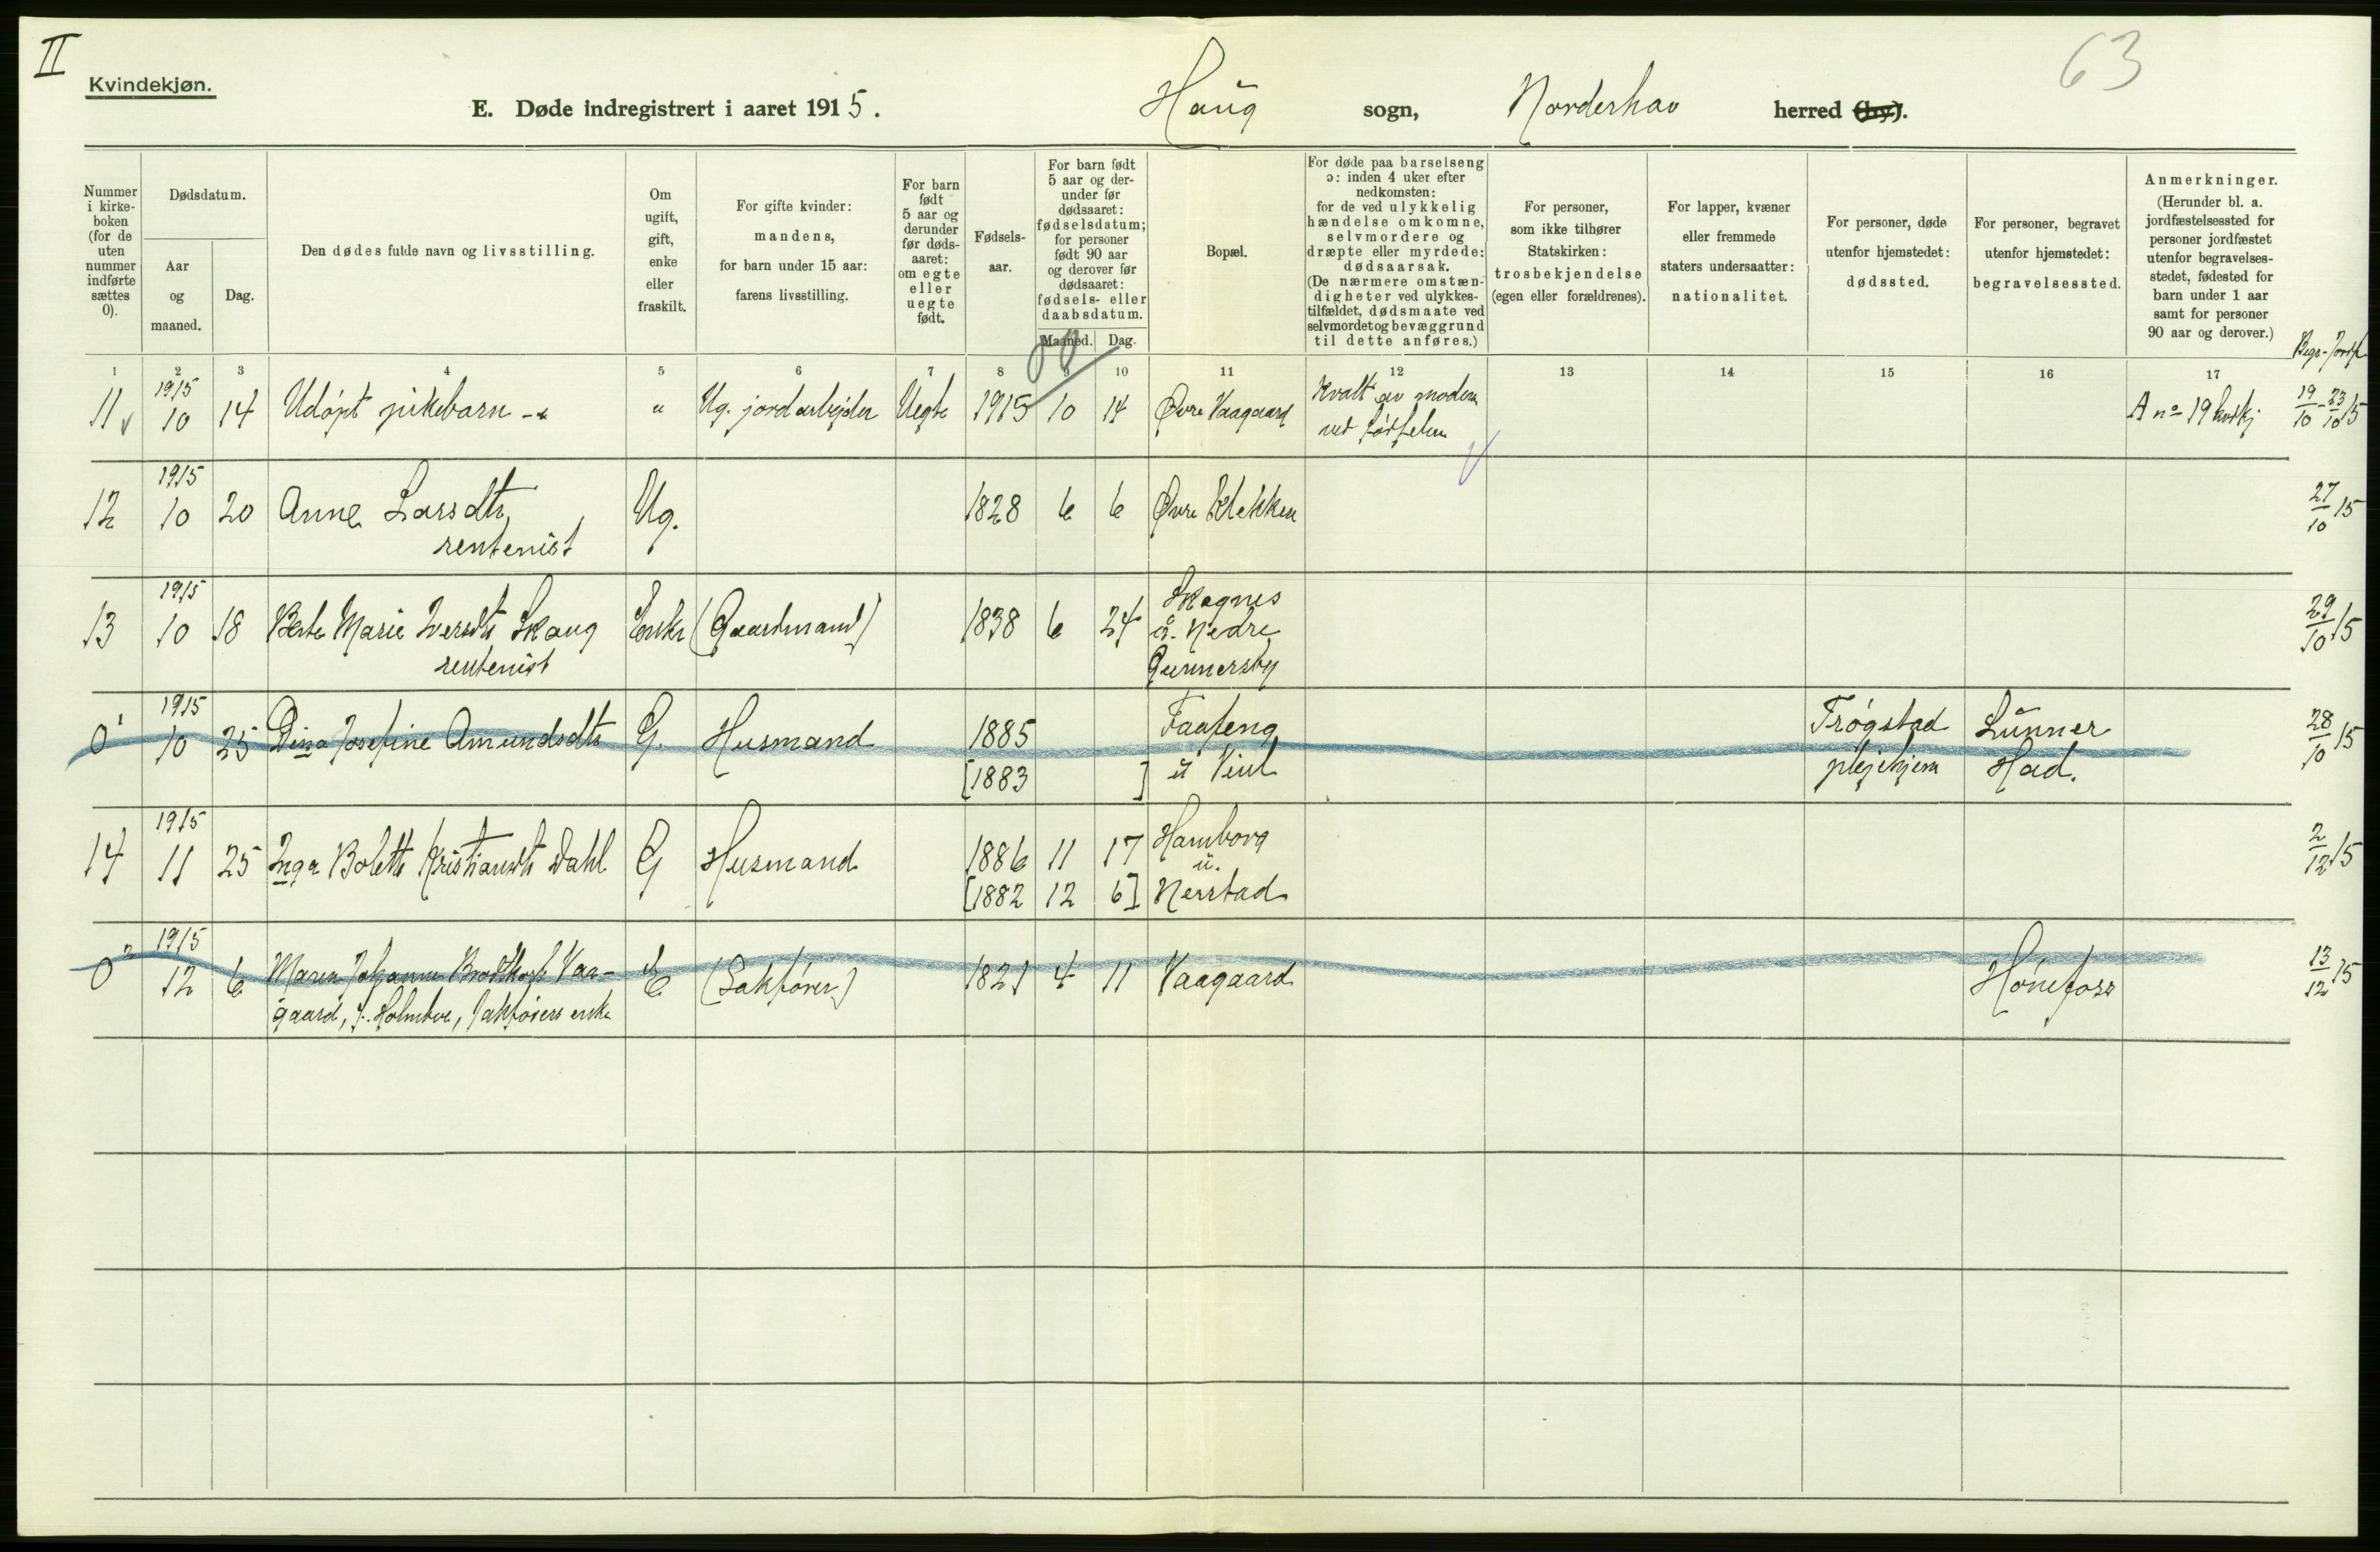 II
63
Kvindekjøn.
E. Døde indregistrert i aaret 1915.
Haug sogn, Norderhov herred (by).
Nummer i kirke-boken (for de uten nummer indførte sættes 0).
Dødsdatum.
Aar og maaned.
Dag.
Den dødes fulde navn og livsstilling.
Om ugift, gift, enke eller fraskilt.
For gifte kvinder: mandens, for barn under 15 aar: farens livsstilling.
For barn født 5 aar og derunder før døds-aaret: om egte eller uegte født.
Fødsels-aar.
For barn født 5 aar og der-under før dødsaaret: fødselsdatum; for personer født 90 aar og derover før dødsaaret: fødsels- eller daabsdatum.
Maaned. Dag.
Bopæl.
For døde paa barselseng ɔ: inden 4 uker efter nedkomsten: for de ved ulykkelig hændelse omkomne, selvmordere og dræpte eller myrdede: dødsaarsak. (De nærmere omstæn-digheter ved ulykkes-tilfældet, dødsmaate ved selvmordet og bevæggrund til dette anføres.)
For personer, som ikke tilhører Statskirken: trosbekjendelse (egen eller forældrenes).
For lapper, kvæner eller fremmede staters undersaatter: nationalitet.
For personer, døde utenfor hjemstedet: dødssted.
For personer, begravet utenfor hjemstedet: begravelsessted.
Anmerkninger. (Herunder bl. a. jordfæstelsessted for personer jordfæstet utenfor begravelses-stedet, fødested for barn under 1 aar samt for personer 90 aar og derover.)
Begr. - Jordf
1 2 3 4 5 6 7 8 9 10 11 12 13 14 15 16 17
11 1915 10 14 Udøpt pikebarn -" " Ug. jordarbejder Uegte 1915 10 14 Øvre Vaagaard Kvalt av moderen A no 19 kvkj 19/10 - 23/10 15
ved fødselen
12 1915 10 20 Anne Larsdtr, Ug. 1828 6 6 Øvre Klekken 27/10 15
rentenist
13 1915 10 18 Berte Marie Iversdtr Skaug Enke (Gaardmand) 1838 6 24 Skognes 29/10 15
rentenist u. Nedre
Gunnersby
0 1 1915 10 25 Dina Josefine Amundsdtr G. Husmand 1885 Faafeng Trøgstad Lunner 28/10 15
[1883 ] u Vend plejehjem Had.
14 1915 11 25 Inga Bolette Kristiansdtr Dahl G Husmand 1886 11 17 Hamborg 2/12 15
u.
[1882 12 6] Nerstad
0 2 1915 12 6 Maren Johanne Brodtkorb Vaa- E (Sakfører) 1821 4 11 Vaagaard Hønefoss 13/12 15
gaard, f. Holmboe, sakførers enke